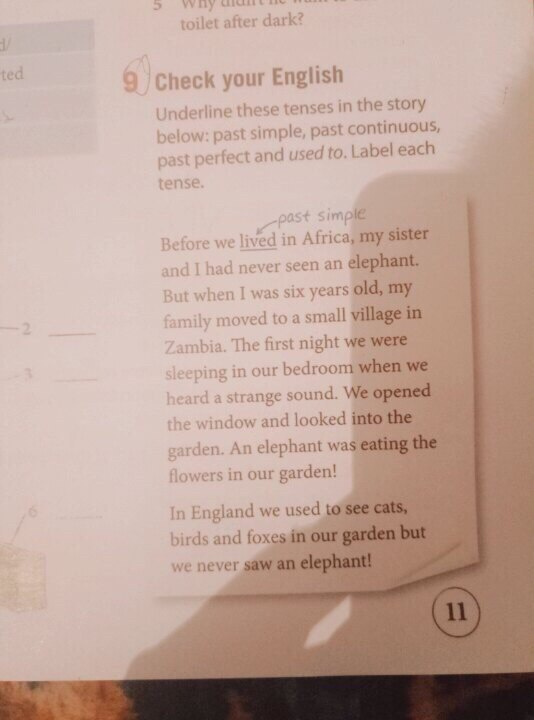 5 Why didn't he want to
toilet after dark?
d/
ted
9 Check your English
Underline these tenses in the story
below: past simple, past continuous,
past perfect and used to. Label each
tense.
past simple
Before we lived in Africa, my sister
and I had never seen an elephant.
But when I was six years old, my
family moved to a small village in
Zambia. The first night we were
sleeping in our bedroom when we
heard a strange sound. We opened
the window and looked into the
garden. An elephant was eating the
flowers in our garden!
In England we used to see cats,
birds and foxes in our garden but
we never saw an elephant!
2
3
6
11